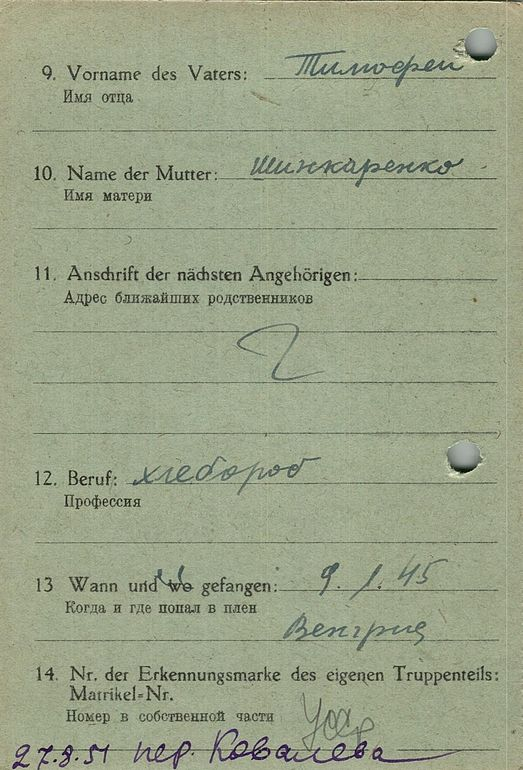 9. Vorname des Vaters: Тимофей
Имя отца
10. Name der Mutter: Шинкаренко
Имя матери
11. Anschrift der nächsten Angehörigen:
Адрес ближайших родственников
12. Beruf: хлебороб
Профессия
13 Wann und wo gefangen: 9. 1. 45
Когда и где попал в плен
Венгрия
14. Nr. der Erkennungsmarke des eigenen Truppenteils:
Matrikel-Nr.
Номер в собственной части
27.8.51 пер. Ковалева